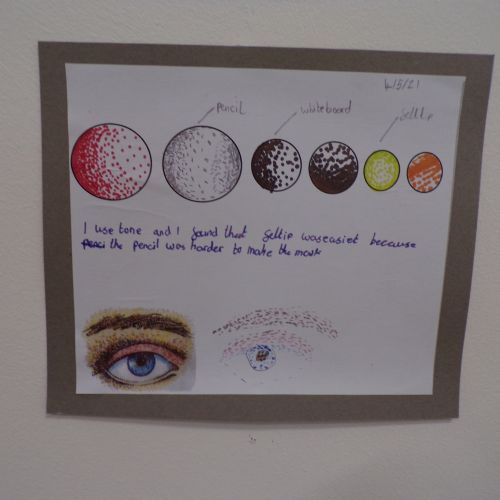 6/5/21
pencil
whiteboard
feltip
I use tone and I found that feltip was easiet because
the pencil was harder to make the mark